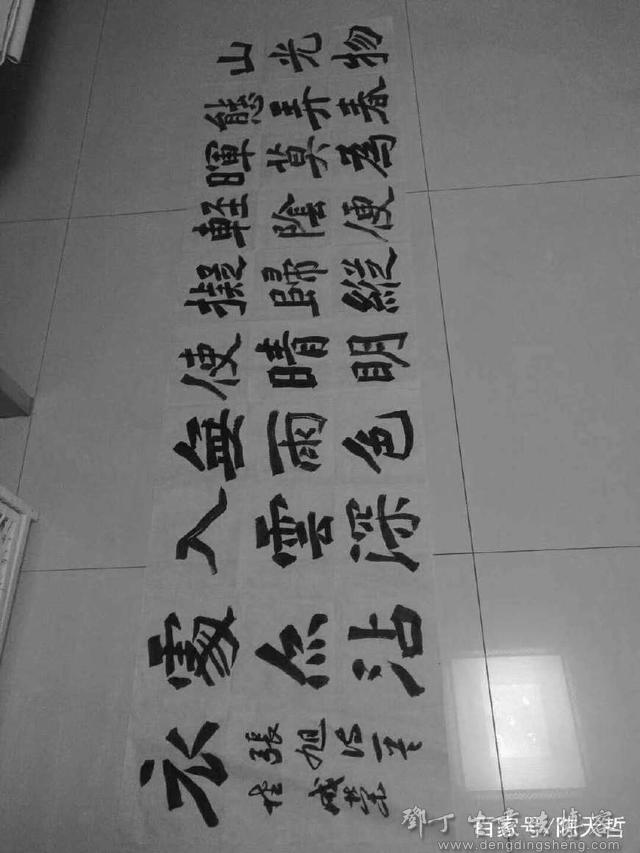 山光物
態弄春
暉莫為
輕陰便
擬歸縱
使晴明
無雨色
入雲深
處亦沾
衣
張旭诗一首
百家号/陈天哲
www.dengdingsheng.com